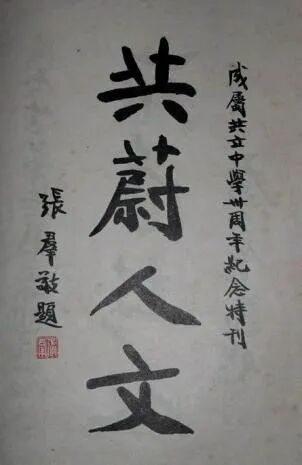 成屬共立中學卅周年紀念特刊
共蔚人文
張羣敬題